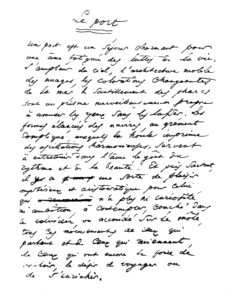 Le port
Un port est un séjour charmant pour
une âme fatiguée des luttes de la vie.
L'ampleur du ciel, l'architecture mobile
des nuages, les colorations changeantes
de la mer, le scintillement des phares
sont un prisme merveilleusement propre
à amuser les yeux sans les lasser. Les
formes élancées des navires, au gréement
compliqué, auxquels la houle imprime
des oscillations harmonieuses, servent
à entretenir dans l'âme le goût du
rythme et de la beauté. Et puis, surtout
il y a une sorte de plaisir
mystérieux et aristocratique pour celui
qui n'a plus ni curiosité
ni ambition, à contempler, couché dans
le belvédère ou accoudé sur le môle,
tous ces mouvements de ceux qui
partent et de ceux qui reviennent,
de ceux qui ont encore la force de
vouloir, le désir de voyager ou
de s'enrichir.